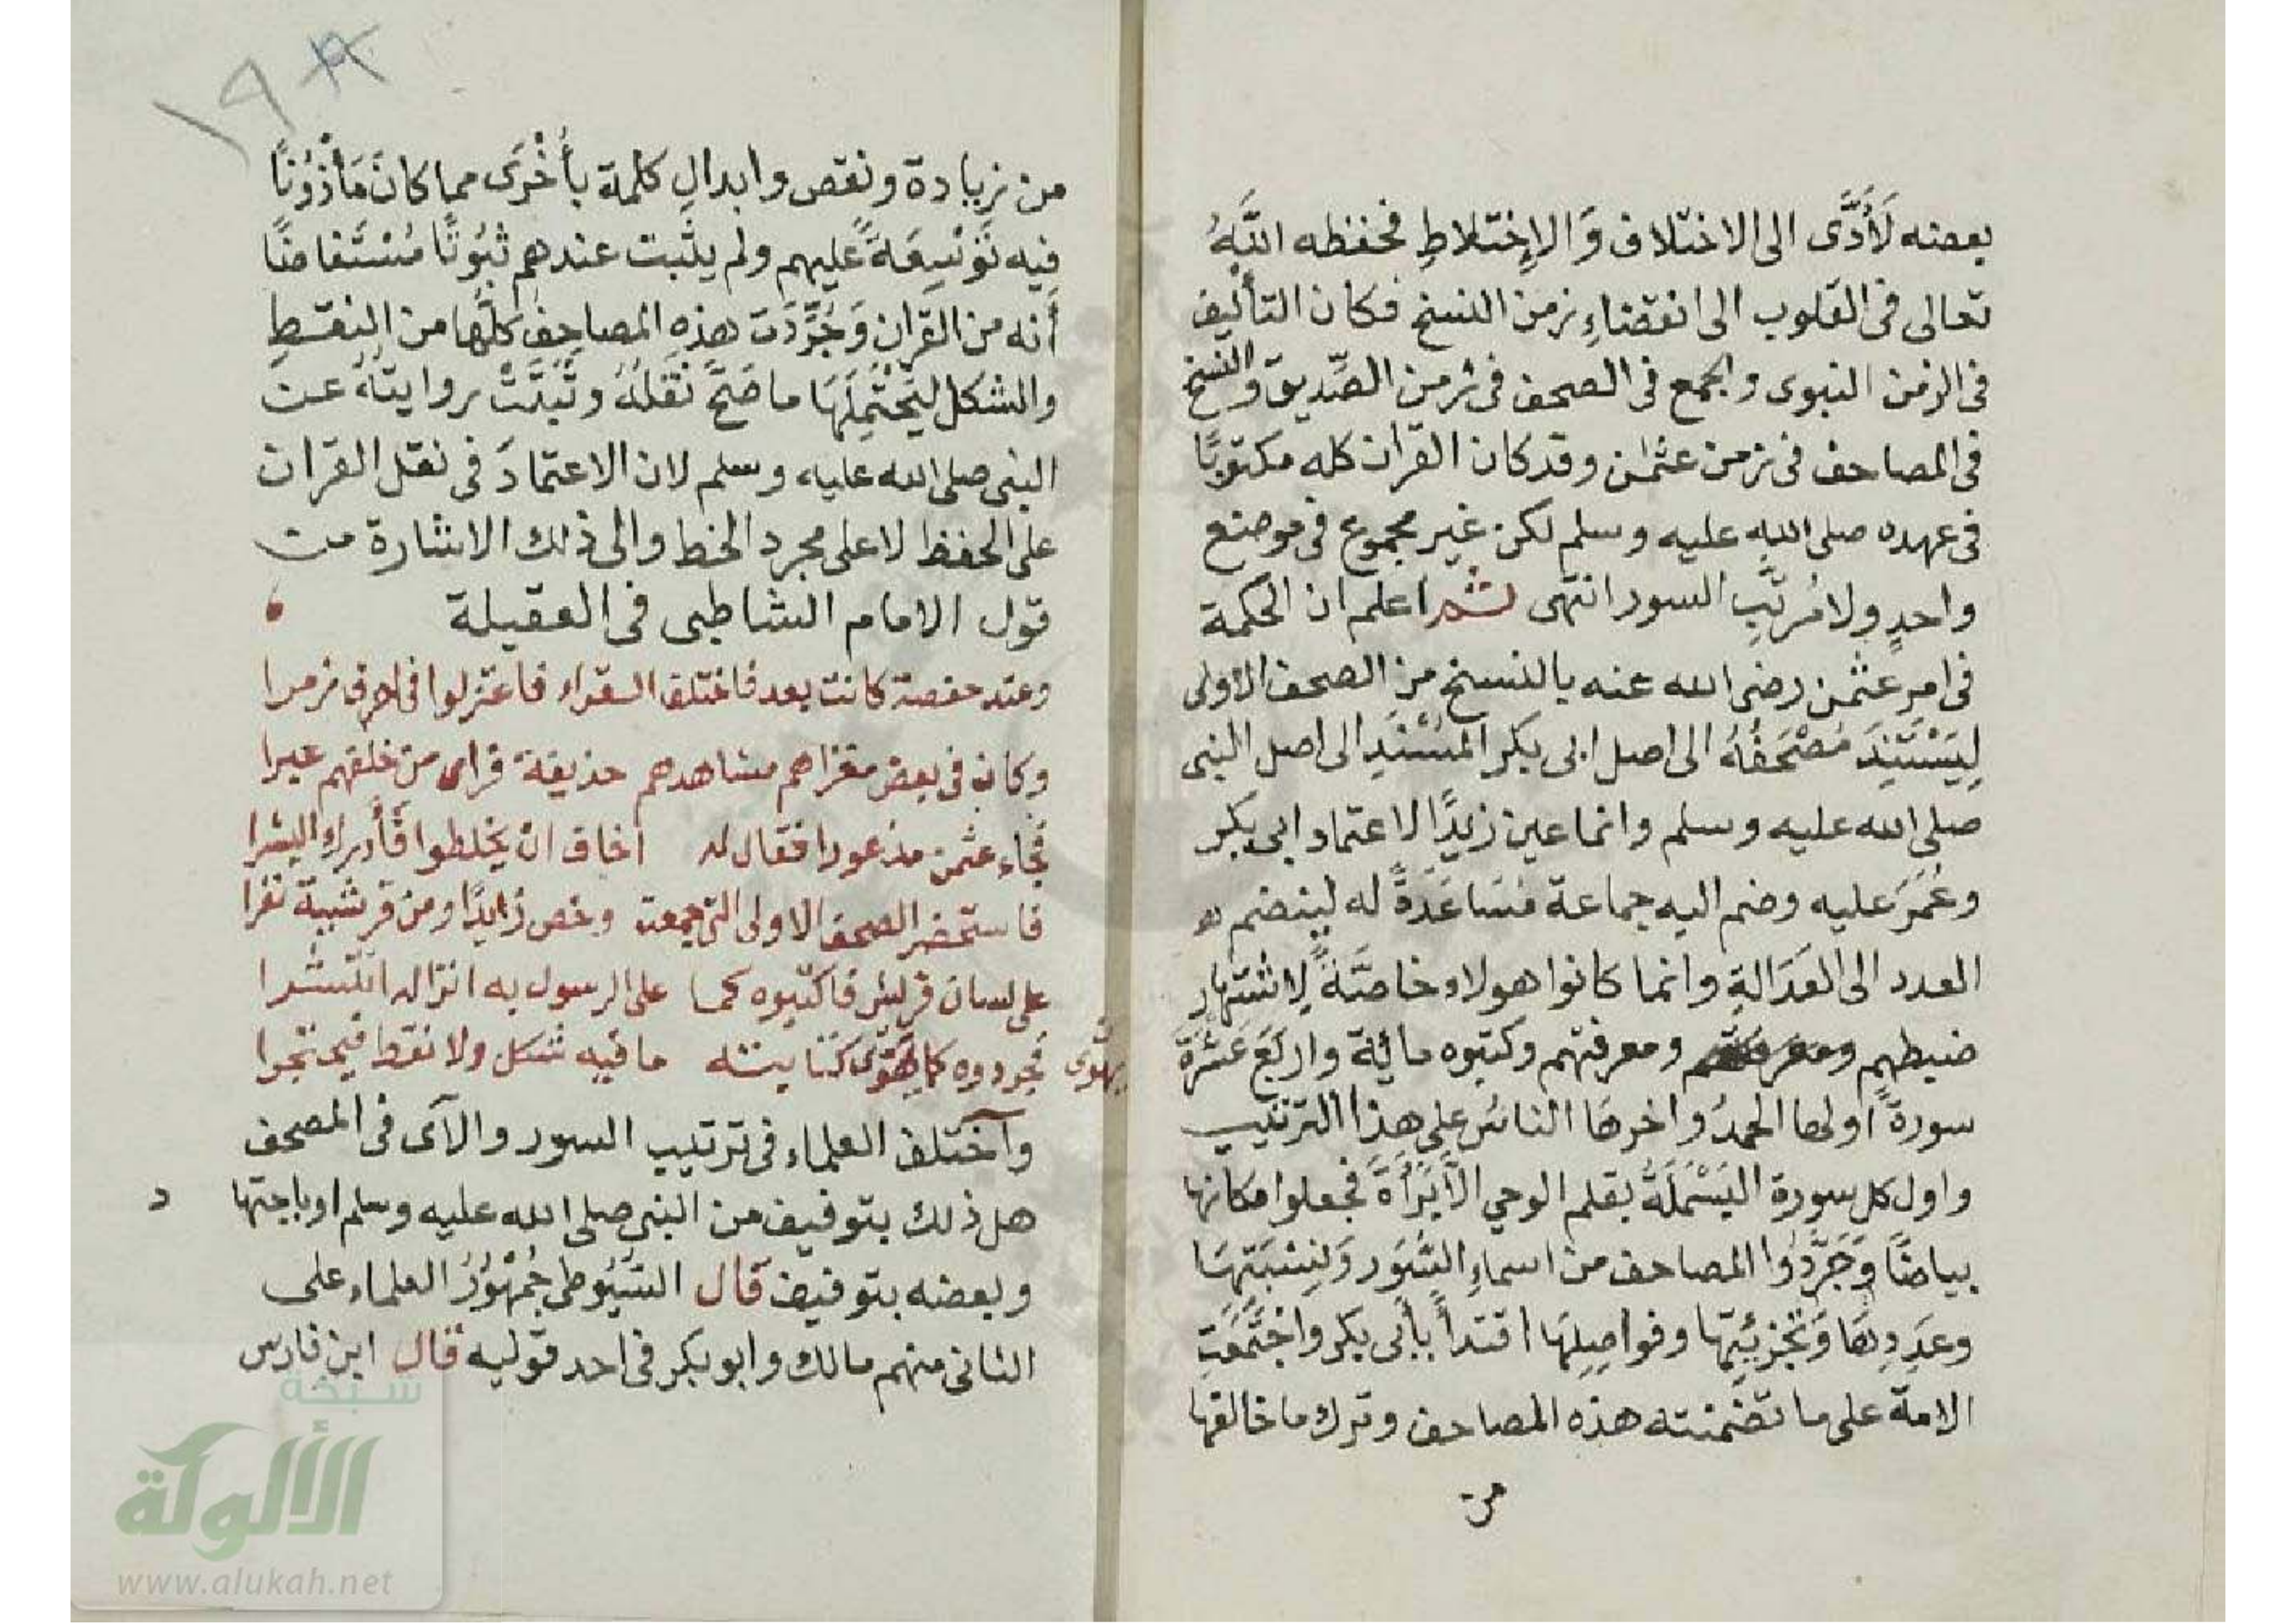 بعضه لَأَدَّى الى الاختلاف وَالإِختلاطِ فحفظه اللّهُ
تعالى فى القلوب الى انقضاءِ زمن النسخ فكان التأليف
فى الزمن النبوى والجمع فى الصحف فى زمن الصّديق والنسخ
فى المصاحف فى زمن عثمٰن وقد كان القران كله مكتوبًا
فى عهده صلى الله عليه وسلم لكن غير مجموع فى موضع
واحدٍ ولا مُرتَّبِ السور انتهى ثم اعلم ان الحكمة
فى امر عثمٰن رضى الله عنه بالنسخ من الصحف الاولى
لِيَسْتَنِدَ مُصْحَفُهُ الى اصل ابى بكر المُسْنَدِ الى اصل النبى
صلى الله عليه وسلم وانما عين زيدًا لاعتماد ابى بكر
وعُمَرَ عليه وضم اليه جماعة مُسَاعَدَةً له لينضم
العدد الى العَدَالةِ وانما كانوا هولاء خاصَّةً لِاشتهارِ
ضبطهم ومعرفتهم وكتبوه مائة واربَعَ عَشْرَةَ
سورةً اولها الحمدُ واخرها الناسُ على هذا الترتيب
واول كل سورة البَسْمَلَةُ بقلم الوحي الاّ بَرَأَةَ فجعلوا مكانها
بياضًا وَجَرَّدُوا المصاحف من اسماءِ السُّوَر وَنِسْبَتِهَا
وعَدَدِهَا وَتَجْزِئَتِها وفواصِلِهَا اقتدأً بأبى بكر واجْتَمَعَتِ
الامة على ما تضمنته هذه المصاحف وترك ما خالفها
من
١٩
من زيادة ونقص وابدال كلمة بأُخْرَى مما كانَ مَأْذُوْنًا
فِيه تَوْسِعَةً عليهم ولم يثبت عندهم ثبُوْتًا مُسْتَفاضًا
أنه من القرانِ وَجُرِّدَت هذه المصاحف كلّها من النقطِ
والشكل لِيَحْتَمِلَهَا ما صَحَّ نَقْلُهُ وثَبَتَتْ روايتُهُ عن
النبى صلى الله عليه وسلم لان الاعتمادَ فى نقل القران
على الحفظ لا على مجرد الخط والى ذلك الاشارة من
قول الامام الشاطبى فى العقيلة
وعند حفصة كانت بعد فاختلف القراء فاعتزلوا فى احرف زمرا
وكان فى بعض مغزاهم مشاهدهم حذيفة فراى من خلفهم عبرا
فجاء عثمن مذعورا فقال له اخاف ان يخلطوا فَأَدرك البشرا
فاستحضر الصحف الاولى التى جمعت وخص زيدًا ومن قريشه نفرا
على لسان قريش فاكتبوه كما على الرسول به انزاله انتشرا
فجردوه كما يهوى كتابته ما فيه شكل ولا نقط فيحتجرا
يهوى
وآختلف العلماء فى ترتيب السور والآى فى المصحف
هل ذلك بتوقيف من النبى صلى الله عليه وسلم او باجتها
د
وبعضه بتوقيف قال السُّيُوطى جُمْهُوْرُ العلماء على
الثانى منهم مالك وابو بكر فى احد قوليه قال ابن فارس
شبكة
الألوكة
www.alukah.net